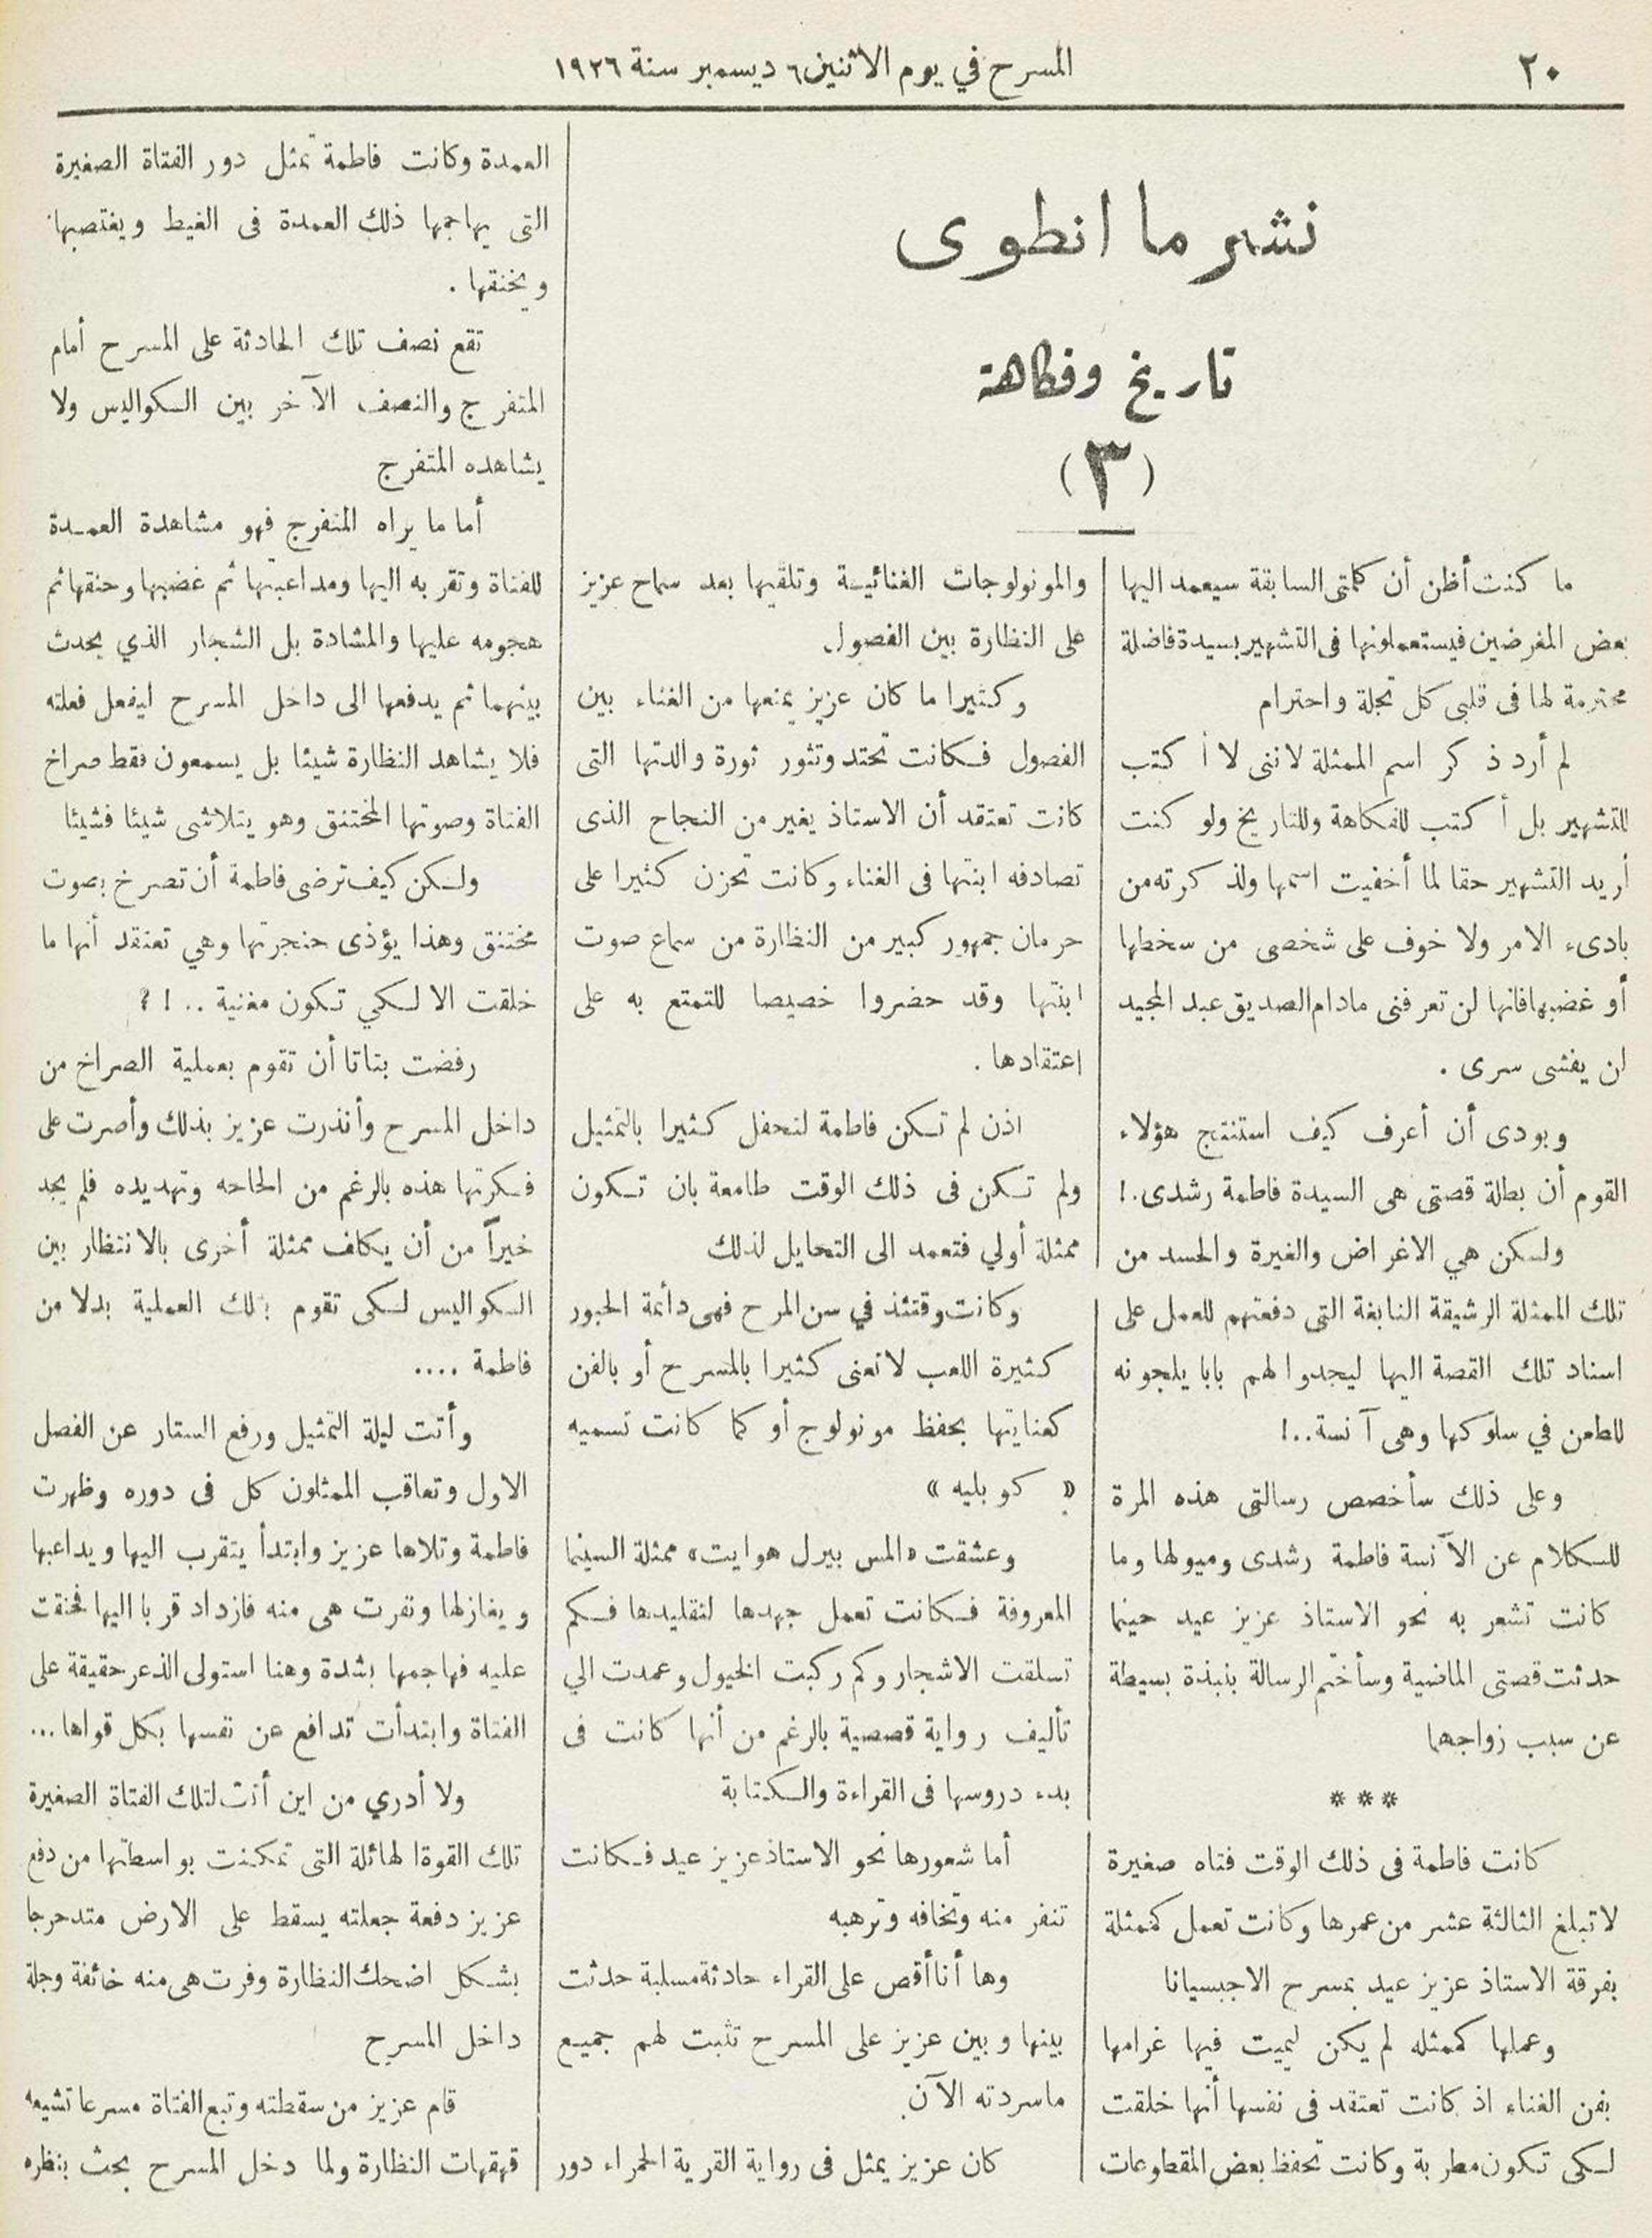 ٢٠
المسرح في يوم الاثنين ٦ ديسمبر سنة ١٩٢٦
نشر ما انطوى
تاريخ وفكاهة
(٣)
ما كنت أظن أن كلمتى السابقة سيعمد اليها
بعض المغرضين فيستعملونها فى التشهير بسيدة فاضلة
محترمة لها فى قلبى كل تجلة واحترام
لم أرد ذكر اسم الممثلة لاننى لا أكتب
للتشهير بل أكتب للفكاهة وللتاريخ ولو كنت
أريد التشهير حقا لما أخفيت اسمها ولذكرته من
بادىء الامر ولا خوف على شخصى من سخطها
أو غضبها فانها لن تعرفنى مادام الصديق عبد المجيد
لن يفشى سرى .
وبودى أن أعرف كيف استنتج هؤلاء
القوم أن بطلة قصتى هى السيدة فاطمة رشدى.!
ولكن هي الاغراض والغيرة والحسد من
تلك الممثلة الرشيقة النابغة التى دفعتهم للعمل على
اسناد تلك القصة اليها ليجدوا لهم بابا يلجونه
للطعن في سلوكها وهى آنسة..!
وعلى ذلك سأخصص رسالتى هذه المرة
للكلام عن الآنسة فاطمة رشدى وميولها وما
كانت تشعر به نحو الاستاذ عزيز عيد حينما
حدثت قصتى الماضية وسأختم الرسالة بنبذة بسيطة
عن سبب زواجهما
***
كانت فاطمة فى ذلك الوقت فتاه صغيرة
لا تبلغ الثالثة عشر من عمرها وكانت تعمل كممثلة
بفرقة الاستاذ عزيز عيد بمسرح الاجبسيانا
وعملها كممثله لم يكن ليميت فيها غرامها
بفن الغناء اذ كانت تعتقد فى نفسها أنها خلقت
لكى تكون مطربة وكانت تحفظ بعض المقطوعات
والمونولوجات الغنائية وتلقيها بعد سماح عزيز
على النظارة بين الفصول
وكثيرا ما كان عزيز يمنعها من الغناء بين
الفصول فكانت تحتد وتثور ثورة والدتها التى
كانت تعتقد أن الاستاذ يغير من النجاح الذى
تصادفه ابنتها فى الغناء وكانت تحزن كثيرا على
حرمان جمهور كبير من النظارة من سماع صوت
ابنتها وقد حضروا خصيصا للتمتع به على
اعتقادها .
اذن لم تكن فاطمة لتحفل كثيرا بالتمثيل
ولم تكن فى ذلك الوقت طامعة بان تكون
ممثلة أولي فتعمد الى التحايل لذلك
وكانت وقتئذ في سن المرح فهى دائمة الحبور
كثيرة اللعب لا تعنى كثيرا بالمسرح أو بالفن
كعنايتها بحفظ مونولوج أو كما كانت تسميه
« كوبليه »
وعشقت «المس بيرل هوايت» ممثلة السينما
المعروفة فكانت تعمل جهدها لتقليدها فكم
تسلقت الاشجار وكم ركبت الخيول وعمدت الي
تأليف رواية قصصية بالرغم من أنها كانت فى
بدء دروسها فى القراءة والكتابة
أما شعورها نحو الاستاذ عزيز عيد فكانت
تنفر منه وتخافه وترهبه
وها أنا أقص على القراء حادثة مسلية حدثت
بينها وبين عزيز على المسرح تثبت لهم جميع
ما سردته الآن
كان عزيز يمثل فى رواية القرية الحمراء دور
العمدة وكانت فاطمة تمثل دور الفتاة الصغيرة
التى يهاجمها ذلك العمدة فى الغيط ويغتصبها
ويخنقها .
تقع نصف تلك الحادثة على المسرح أمام
المتفرج والنصف الآخر بين السكواليس ولا
يشاهده المتفرج
أما ما يراه المتفرج فهو مشاهدة العمدة
للفتاة وتقربه اليها ومداعبتها ثم غضبها وحنقها ثم
هجومه عليها والمشادة بل الشجار الذي يحدث
بينهما ثم يدفعها الى داخل المسرح ليفعل فعلته
فلا يشاهد النظارة شيئا بل يسمعون فقط صراخ
الفتاة وصوتها المختنق وهو يتلاشى شيئا فشيئا
ولكن كيف ترضى فاطمة أن تصرخ بصوت
مختنق وهذا يؤذى حنجرتها وهي تعتقد أنها ما
خلقت الا لكي تكون مغنية .. ! ؟
رفضت بتاتا أن تقوم بعملية الصراخ من
داخل المسرح وأنذرت عزيز بذلك وأصرت على
فكرتها هذه بالرغم من الحاحه وتهديده فلم يجد
خيراً من أن يكلف ممثلة أخرى بالانتظار بين
السكواليس لكى تقوم بتلك العملية بدلا من
فاطمة ....
وأتت ليلة التمثيل ورفع الستار عن الفصل
الاول وتعاقب الممثلون كل فى دوره وظهرت
فاطمة وتلاها عزيز وابتدأ يتقرب اليها ويداعبها
ويغازلها ونفرت هى منه فازداد قربا اليها فحنقت
عليه فهاجمها بشدة وهنا استولى الذعر حقيقة على
الفتاة وابتدأت تدافع عن نفسها بكل قواها...
ولا أدري من اين أتت لتلك الفتاة الصغيرة
تلك القوة الهائلة التى تمكنت بواسطتها من دفع
عزيز دفعة جعلته يسقط على الارض متدحرجا
بشكل اضحك النظارة وفرت هى منه خائفة وجلة
داخل المسرح
قام عزيز من سقطته وتبع الفتاة مسرعا تشيعه
قهقهات النظارة ولما دخل المسرح بحث بنظره